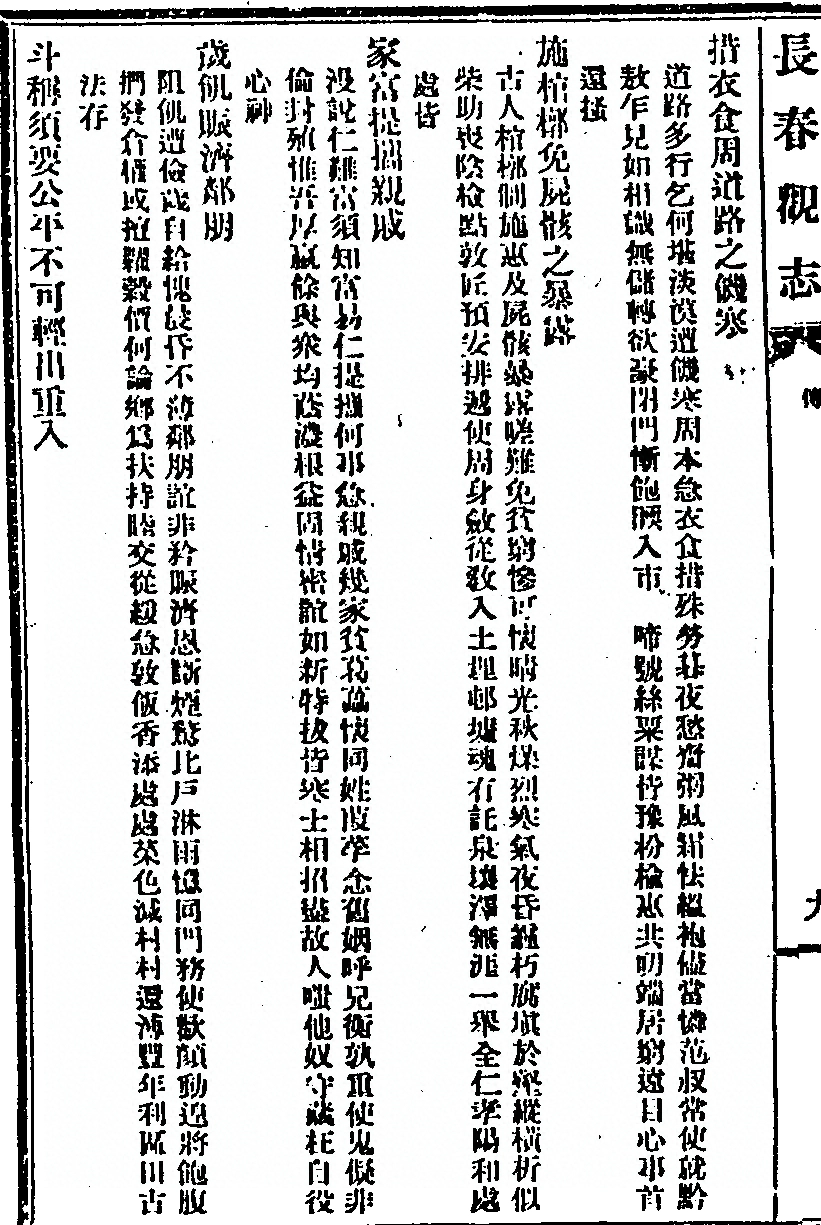 長春觀志 傳 九
措衣食周道路之饑寒
道路多行乞何堪淡漠遭饑寒周本急衣食措殊勞暮夜愁齋粥風霜怯縕袍儘當憐范叔常使就黔
敖乍見如相識無儲轉欲豪閉門慚飽腹入市 啼號絲粟謀皆豫枌榆惠共叨端居窮遠目心事首
還搔
施棺槨免屍骸之暴露
古人棺槨側施惠及屍骸暴露嗟難免貧窮慘可懷晴光秋燥烈寒氣夜昏 朽腐填於壑縱橫析似
柴助喪陰檢點敦匠預安排遂使周身斂從教入土埋邨墟魂有託泉壤澤無涯一舉全仁孝陽和處
處皆
家富提攜親戚
漫說仁難富須知富易仁提攜何事急親戚幾家貧葛藟懷同姓葭莩念舊姻呼兄衡孰重使鬼儗非
倫封殖惟吾厚贏餘與衆均蔭濃根益固情密誼如新特拔皆寒士相招盡故人嗤他奴守 枉自役
心神
歲飢賑濟鄰朋
阻飢遭儉歲自給愧晨昏不薄鄰朋誼非矜賑濟恩斷煙 比戶淋雨 同門務使歡顏動迴將飽腹
捫發倉 或 穀價何論鄉爲扶持睦交從緩急敦飯香添處處菜色減村村還溥豐年利 田古
法存
斗稱須要公平不可輕出重入